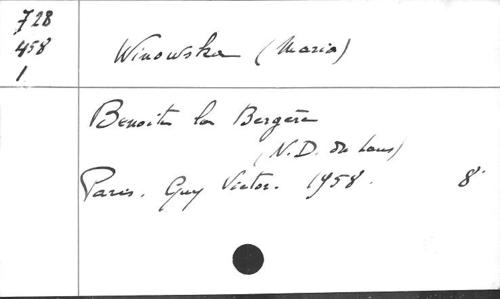 728
458
1
Winowska (Maria)
Benoite la Bergère
(N.D. du Laus)
Paris. Guy Victor. 1958. 8°